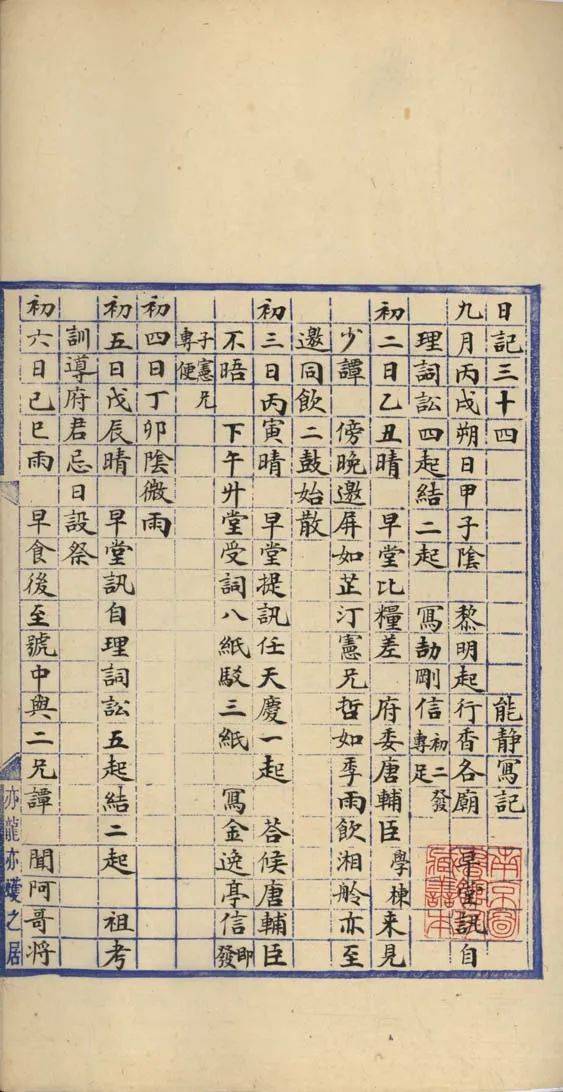 日記三十四　能静寫記
九月丙戌朔日甲子陰　黎明起行香各廟　早堂訊自
理詞訟四起結二起　寫劼剛信初二發專足
初二日乙丑晴　早堂比糧差　府委唐輔臣學棟来見
少譚　傍晚邀屏如芷汀憲兄哲如季雨飲湘舲亦至
邀同飲二鼓始散
初三日丙寅晴　早堂提訊任天慶一起　荅候唐輔臣
不晤　下午升堂受詞八紙駁三紙　寫金逸亭信即發
子憲兄專便
初四日丁卯陰微雨
初五日戊辰晴　早堂訊自理詞訟五起結二起　祖考
訓導府君忌日設祭
初六日己巳雨　早食後至號中與二兄譚　聞阿哥將
亦龍亦蠖之居
南京圖書館藏善本